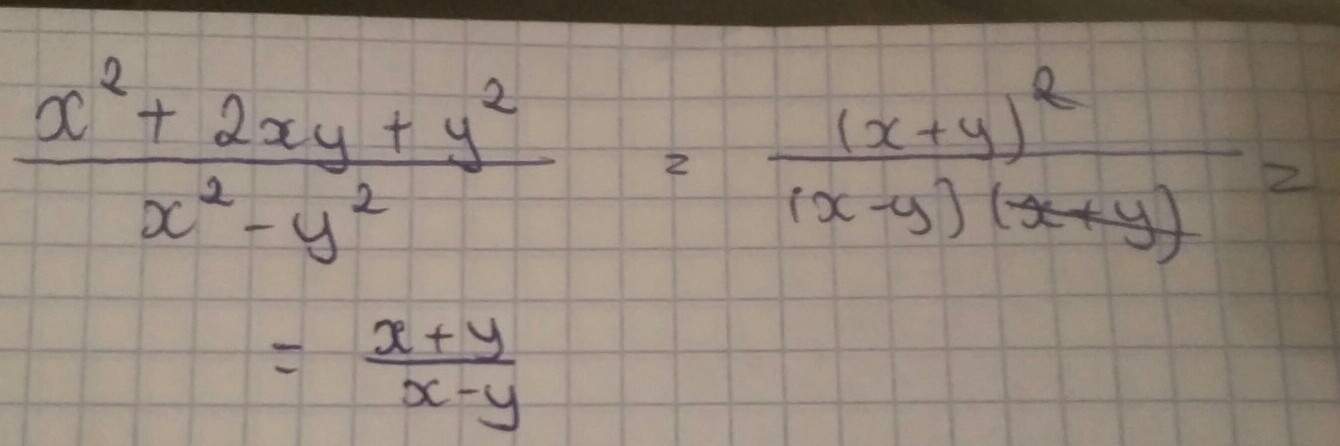 x² + 2xy + y² / x² - y² = (x+y)² / (x-y)(x+y) =
= x+y / x-y